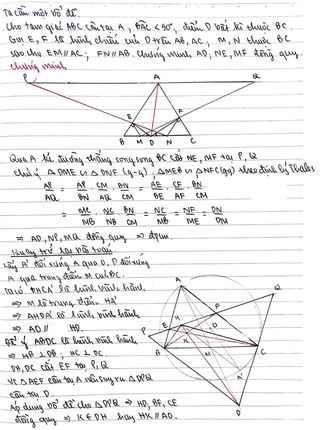 Ta cần một bổ đề.
Cho tam giác ABC cân tại A, BAC < 90°, điểm D bất kì thuộc BC.
Gọi E, F là hình chiếu của D trên AB, AC, M, N thuộc BC
sao cho EM//AC; FN//AB. Chứng minh AD, NE, MF đồng quy.
Chứng minh
P A Q
E F
B M D N C
Qua A kẻ đường thẳng song song BC cắt NE, MF tại P, Q
Chú ý △DME ∽ △DNF (g-g) △MEB ∽ △NFC (gg) theo định lý Thales
AP/AQ = AP/BN . CM/AQ . BN/CM = AE/BE . CF/AF . BN/CM
= MC/MB . NC/NB . BN/CM = NC/MB = NF/ME = DN/DM
⇒ AD, NP, MQ đồng quy ⇒ đpcm.
Quay trở lại bài toán.
Lấy A' đối xứng A qua D, P đối xứng
A qua trung điểm M của BC.
Ta có BHCA' là hình bình hành
⇒ M là trung điểm HA'
⇒ AHDA' là hình bình hành
⇒ AD // HD.
Để ý ABDC là hình bình hành
⇒ HB ⊥ DB; HC ⊥ DC.
DB, DC cắt EF tại P, Q
Vì △AEF cân tại A nên suy ra △DPQ
cân tại D.
Áp dụng bổ đề cho △DPQ ⇒ HD, BF, CE
đồng quy ⇒ K ∈ DH hay HK // AD.
A
Q
F
P E H
K
B C
N
D
A'